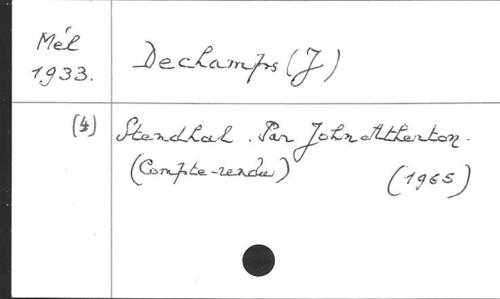 Mél
1933.
Dechamps (J)
(4)
Stendhal. Par John Atherton.
(Compte-rendu)
(1965)